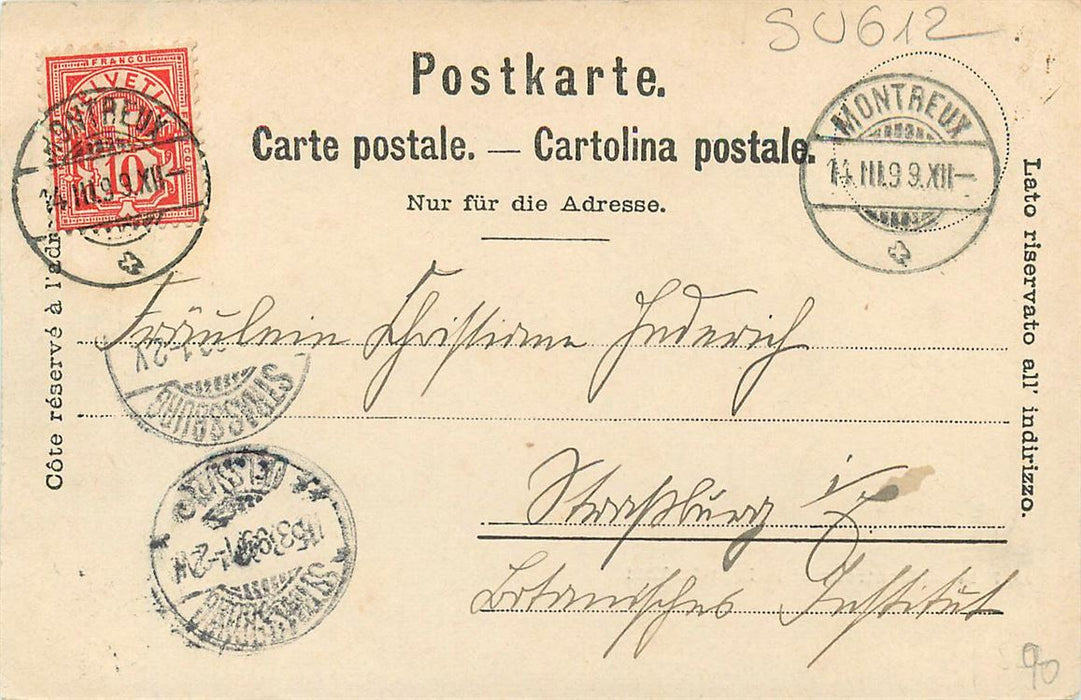 SU612
Postkarte.
Carte postale. — Cartolina postale.
Nur für die Adresse.
FRANCO
HELVETIA
10
MONTREUX
14.III.99.XII—
MONTREUX
14.III.99.XII—
Côte réservé à l'adr
Lato riservato all' indirizzo.
Fräulein Christiane
1-2N
STRASSBURG
Straßburg i/
Botanisches Institut
1-2N
STRASSBURG
90